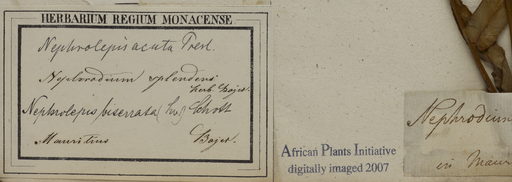 HERBARIUM REGIUM MONACENSE
Nephrolepis acuta Presl.
Nephrodium splendens
herb. Bojer.
Nephrolepis biserrata (Sw.) Schott
Mauritius Bojer.
African Plants Initiative
digitally imaged 2007
Nephrodium
in Maur